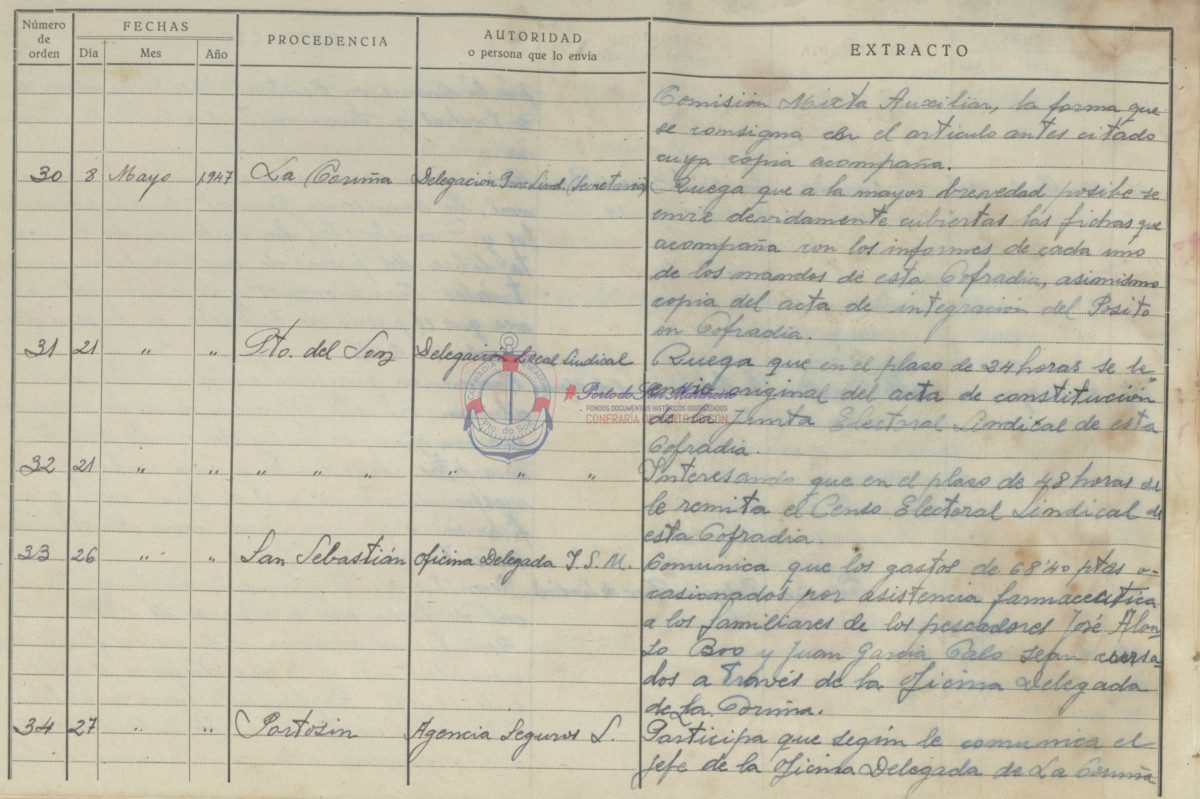 Número de orden
FECHAS
Día Mes Año
PROCEDENCIA
AUTORIDAD
o persona que lo envía
EXTRACTO
Comisión Mixta Auxiliar, la forma que
se consigna en el articulo antes citado
cuya copia acompaña.
30 8 Mayo 1947 La Coruña Delegación Prov. Sind. (Secretaria) Ruega que a la mayor brevedad posible se
envie devidamente cubiertas las fichas que
acompaña con los informes de cada uno
de los mandos de esta Cofradia, asimismo
copia del acta de integración del Posito
en Cofradia.
31 21 " " Pto. del Son Delegación Local Sindical Ruega que en el plaso de 24 horas se le
envie original del acta de constitución
de la Junta Electoral Sindical de esta
Cofradia.
32 21 " " " " " " " " Interesando que en el plaso de 48 horas se
le remita el Censo Electoral Sindical de
esta Cofradia.
33 26 " " San Sebastián Oficina Delegada I.S.M. Comunica que los gastos de 68'40 ptas o-
casionados por asistencia farmaceutica
a los familiares de los pescadores José Alon-
so Boo y Juan Garcia Calo sean cursa-
dos a traves de la Oficina Delegada
de La Coruña.
34 27 " " Portosin Agencia Seguros S. Participa que según le comunica el
Jefe de la Oficina Delegada de La Coruña
COFRADÍA
Pto. do Son
#Porto do Son Mariñeiro
FONDOS DOCUMENTAIS HISTÓRICOS DIGITALIZADOS
CONFRARÍA DE PORTO DO SON